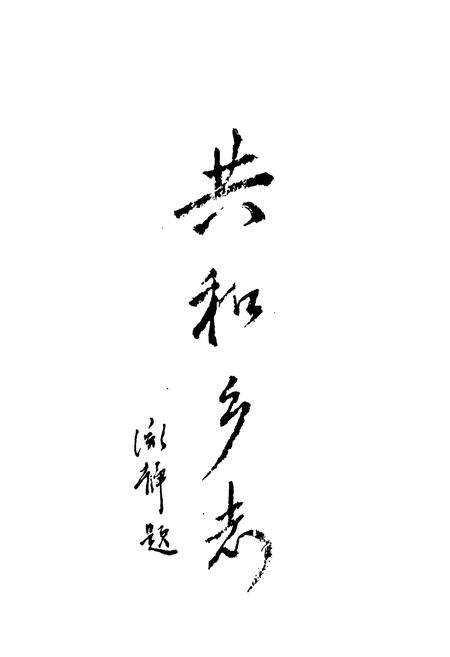 共和乡志
静题